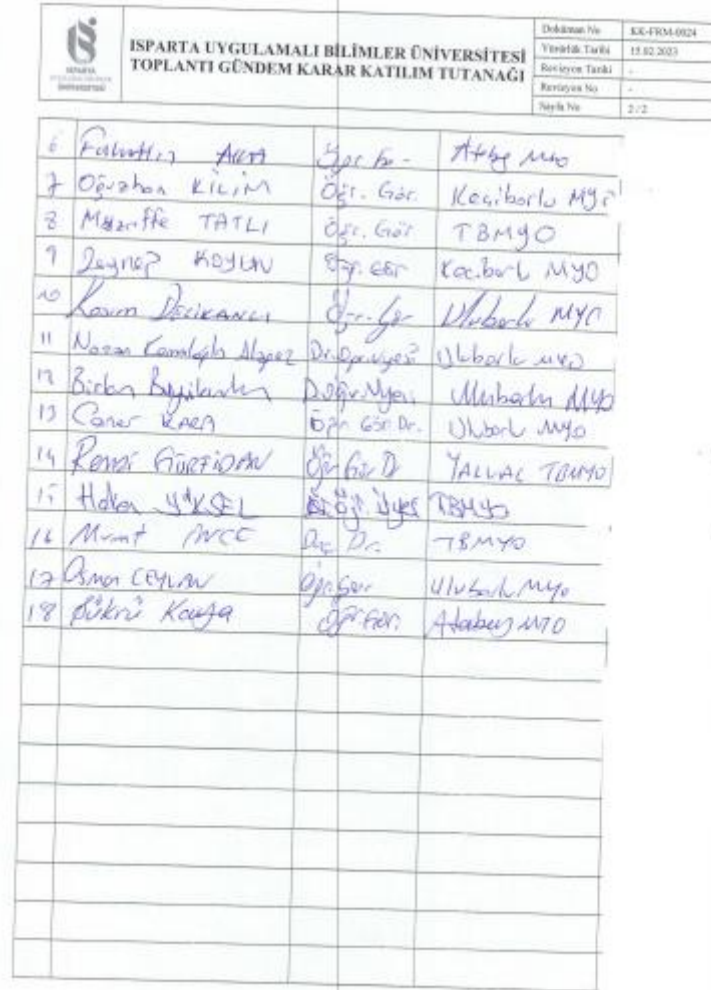 ISPARTA UYGULAMALI BİLİMLER ÜNİVERSİTESİ
TOPLANTI GÜNDEM KARAR KATILIM TUTANAĞI
Doküman No KK-FRM-0024
Yürürlük Tarihi 15.02.2023
Revizyon Tarihi -
Revizyon No -
Sayfa No 2/2
6
7 Oğuzhan KİLİM Öğr. Gör. Keçiborlu MYO
8 TATLI Öğr. Gör TBMYO
9 Zeynep KOYUN Öğr. Gör Keçiborlu MYO
10 Kasım DELİKANLI Öğr. Gör Uluborlu MYO
11 Nazan Dr. Öğr. Üyesi Uluborlu MYO
12 Uluborlu MYO
13 Caner KARA Öğr. Gör. Dr. Uluborlu MYO
14 Remzi GÜRFİDAN Öğr. Gör. D YALVAÇ TBMYO
15 Hakan YÜKSEL Öğr. Üyes TBMYO
16 Murat İNCE Doç. Dr. TBMYO
17 Osman CEYLAN Öğr. Gör Uluborlu MYO
18 Şükrü Kaya Öğr. Gör. Atabey MYO